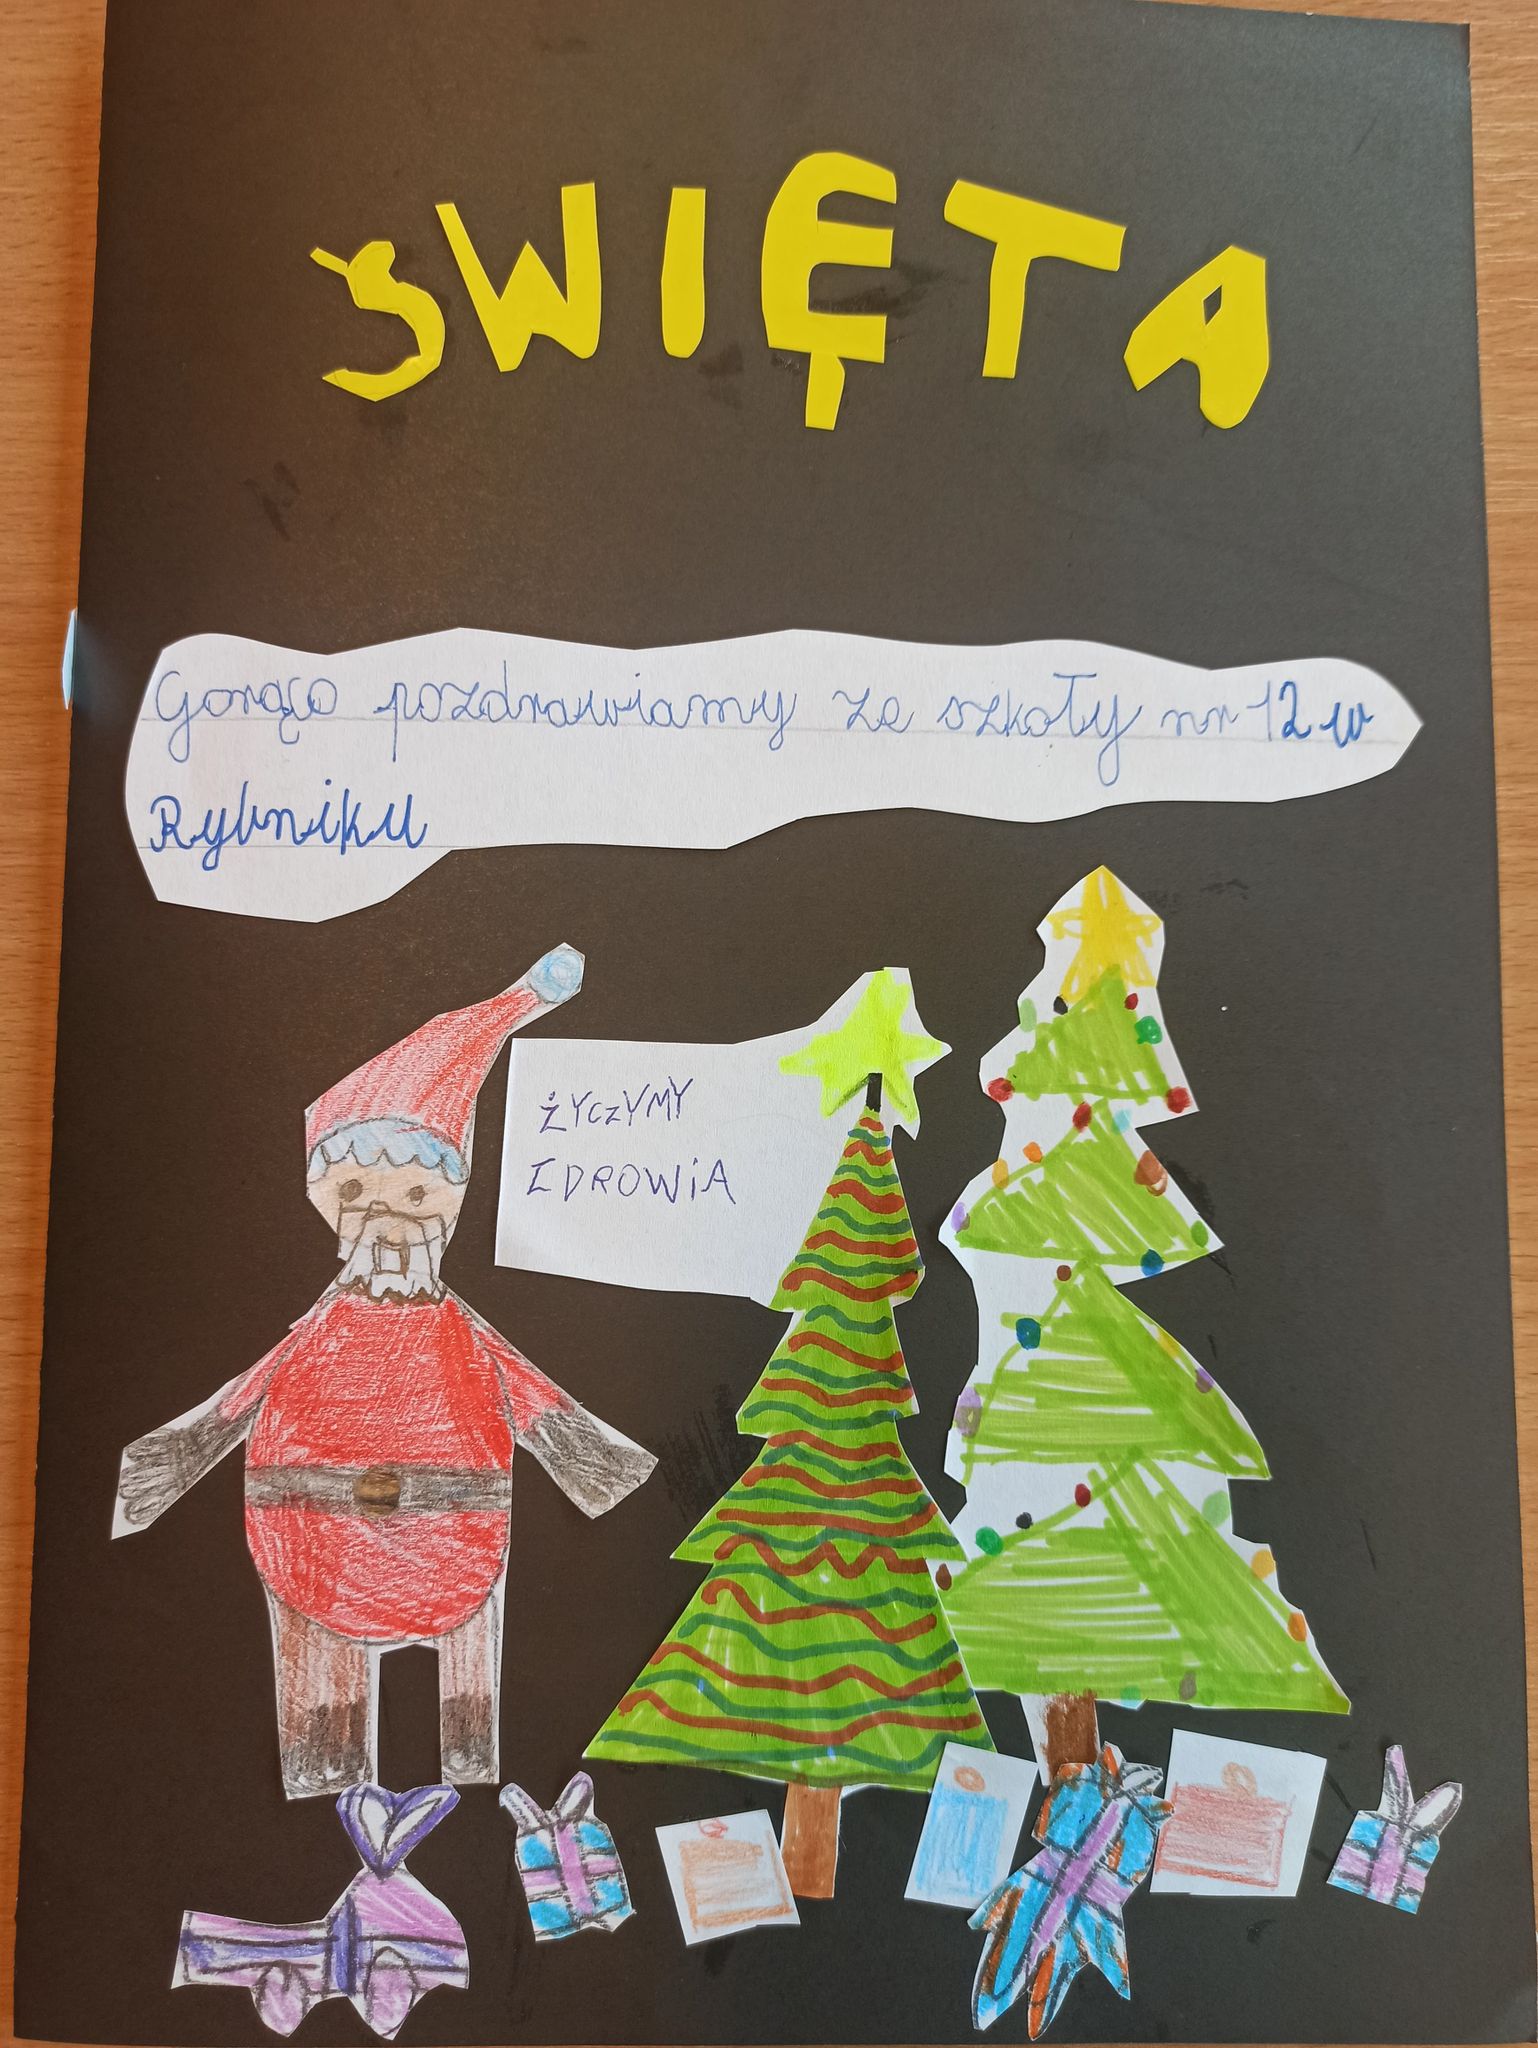 ŚWIĘTA
Gorąco pozdrawiamy ze szkoły nr 12 w
Rybniku
ŻYCZYMY
ZDROWIA